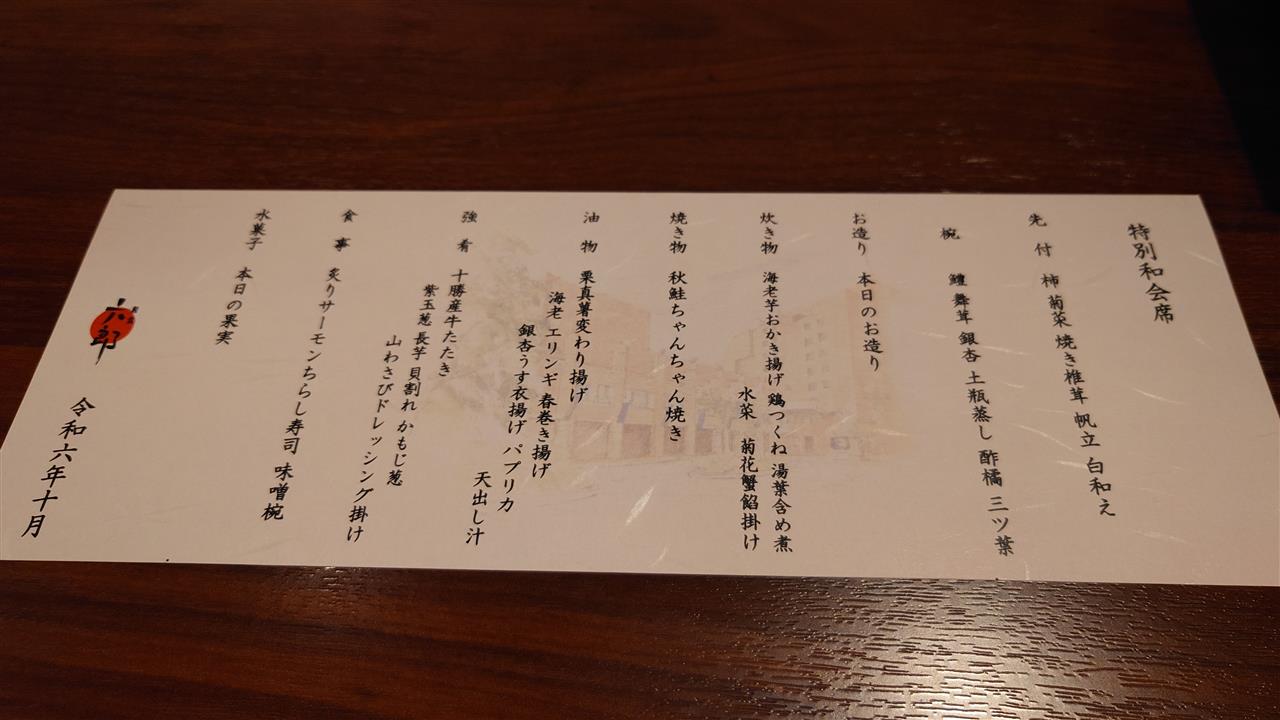 特別和会席
先付 柿 菊菜 焼き椎茸 帆立 白和え
椀 鱧 舞茸 銀杏 土瓶蒸し 酢橘 三ツ葉
お造り 本日のお造り
炊き物 海老芋おかき揚げ 鶏つくね 湯葉含め煮
水菜 菊花蟹餡掛け
焼き物 秋鮭ちゃんちゃん焼き
油物 栗真薯変わり揚げ
海老 エリンギ 春巻き揚げ
銀杏うす衣揚げ パプリカ
天出し汁
強肴 十勝産牛たたき
紫玉葱 長芋 貝割れ かもじ葱
山わさびドレッシング掛け
食事 炙りサーモンちらし寿司 味噌椀
水菓子 本日の果実
令和六年十月